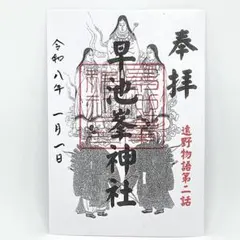 奉拝
遠野物語第二話
早池峯神社
令和八年 一月一日